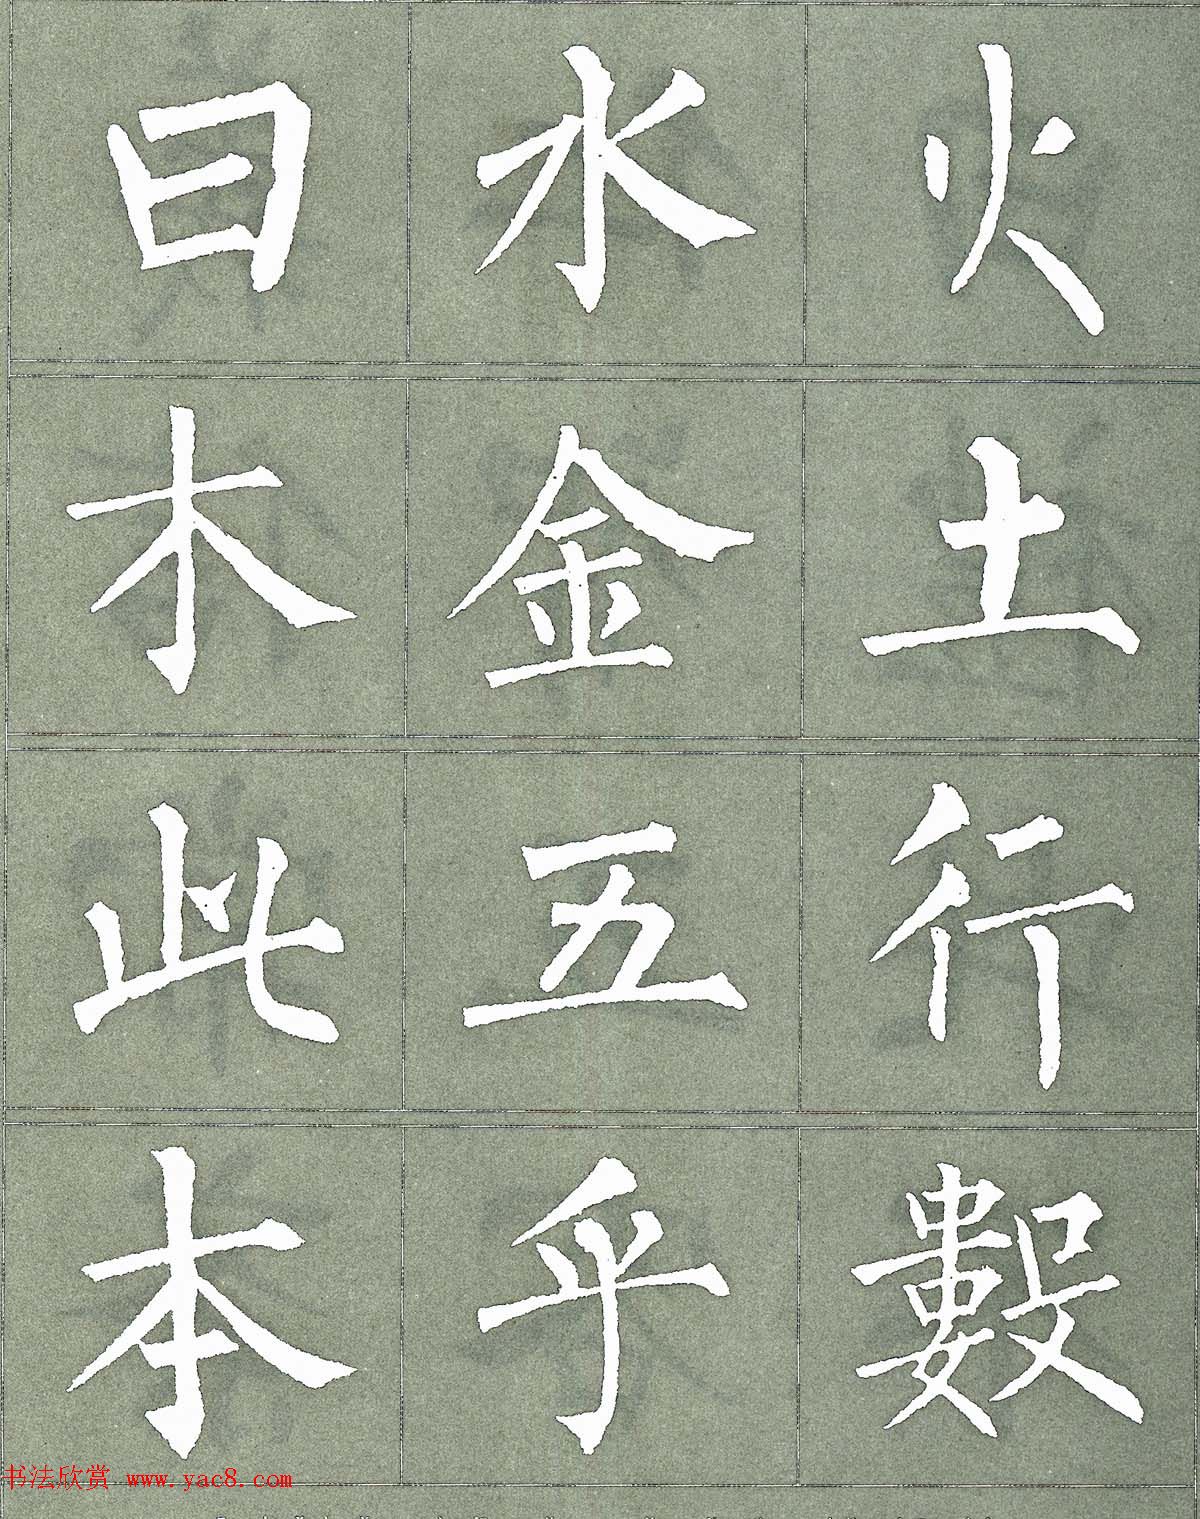 曰水火
木金土
此五行
本乎數
书法欣赏 www.yac8.com